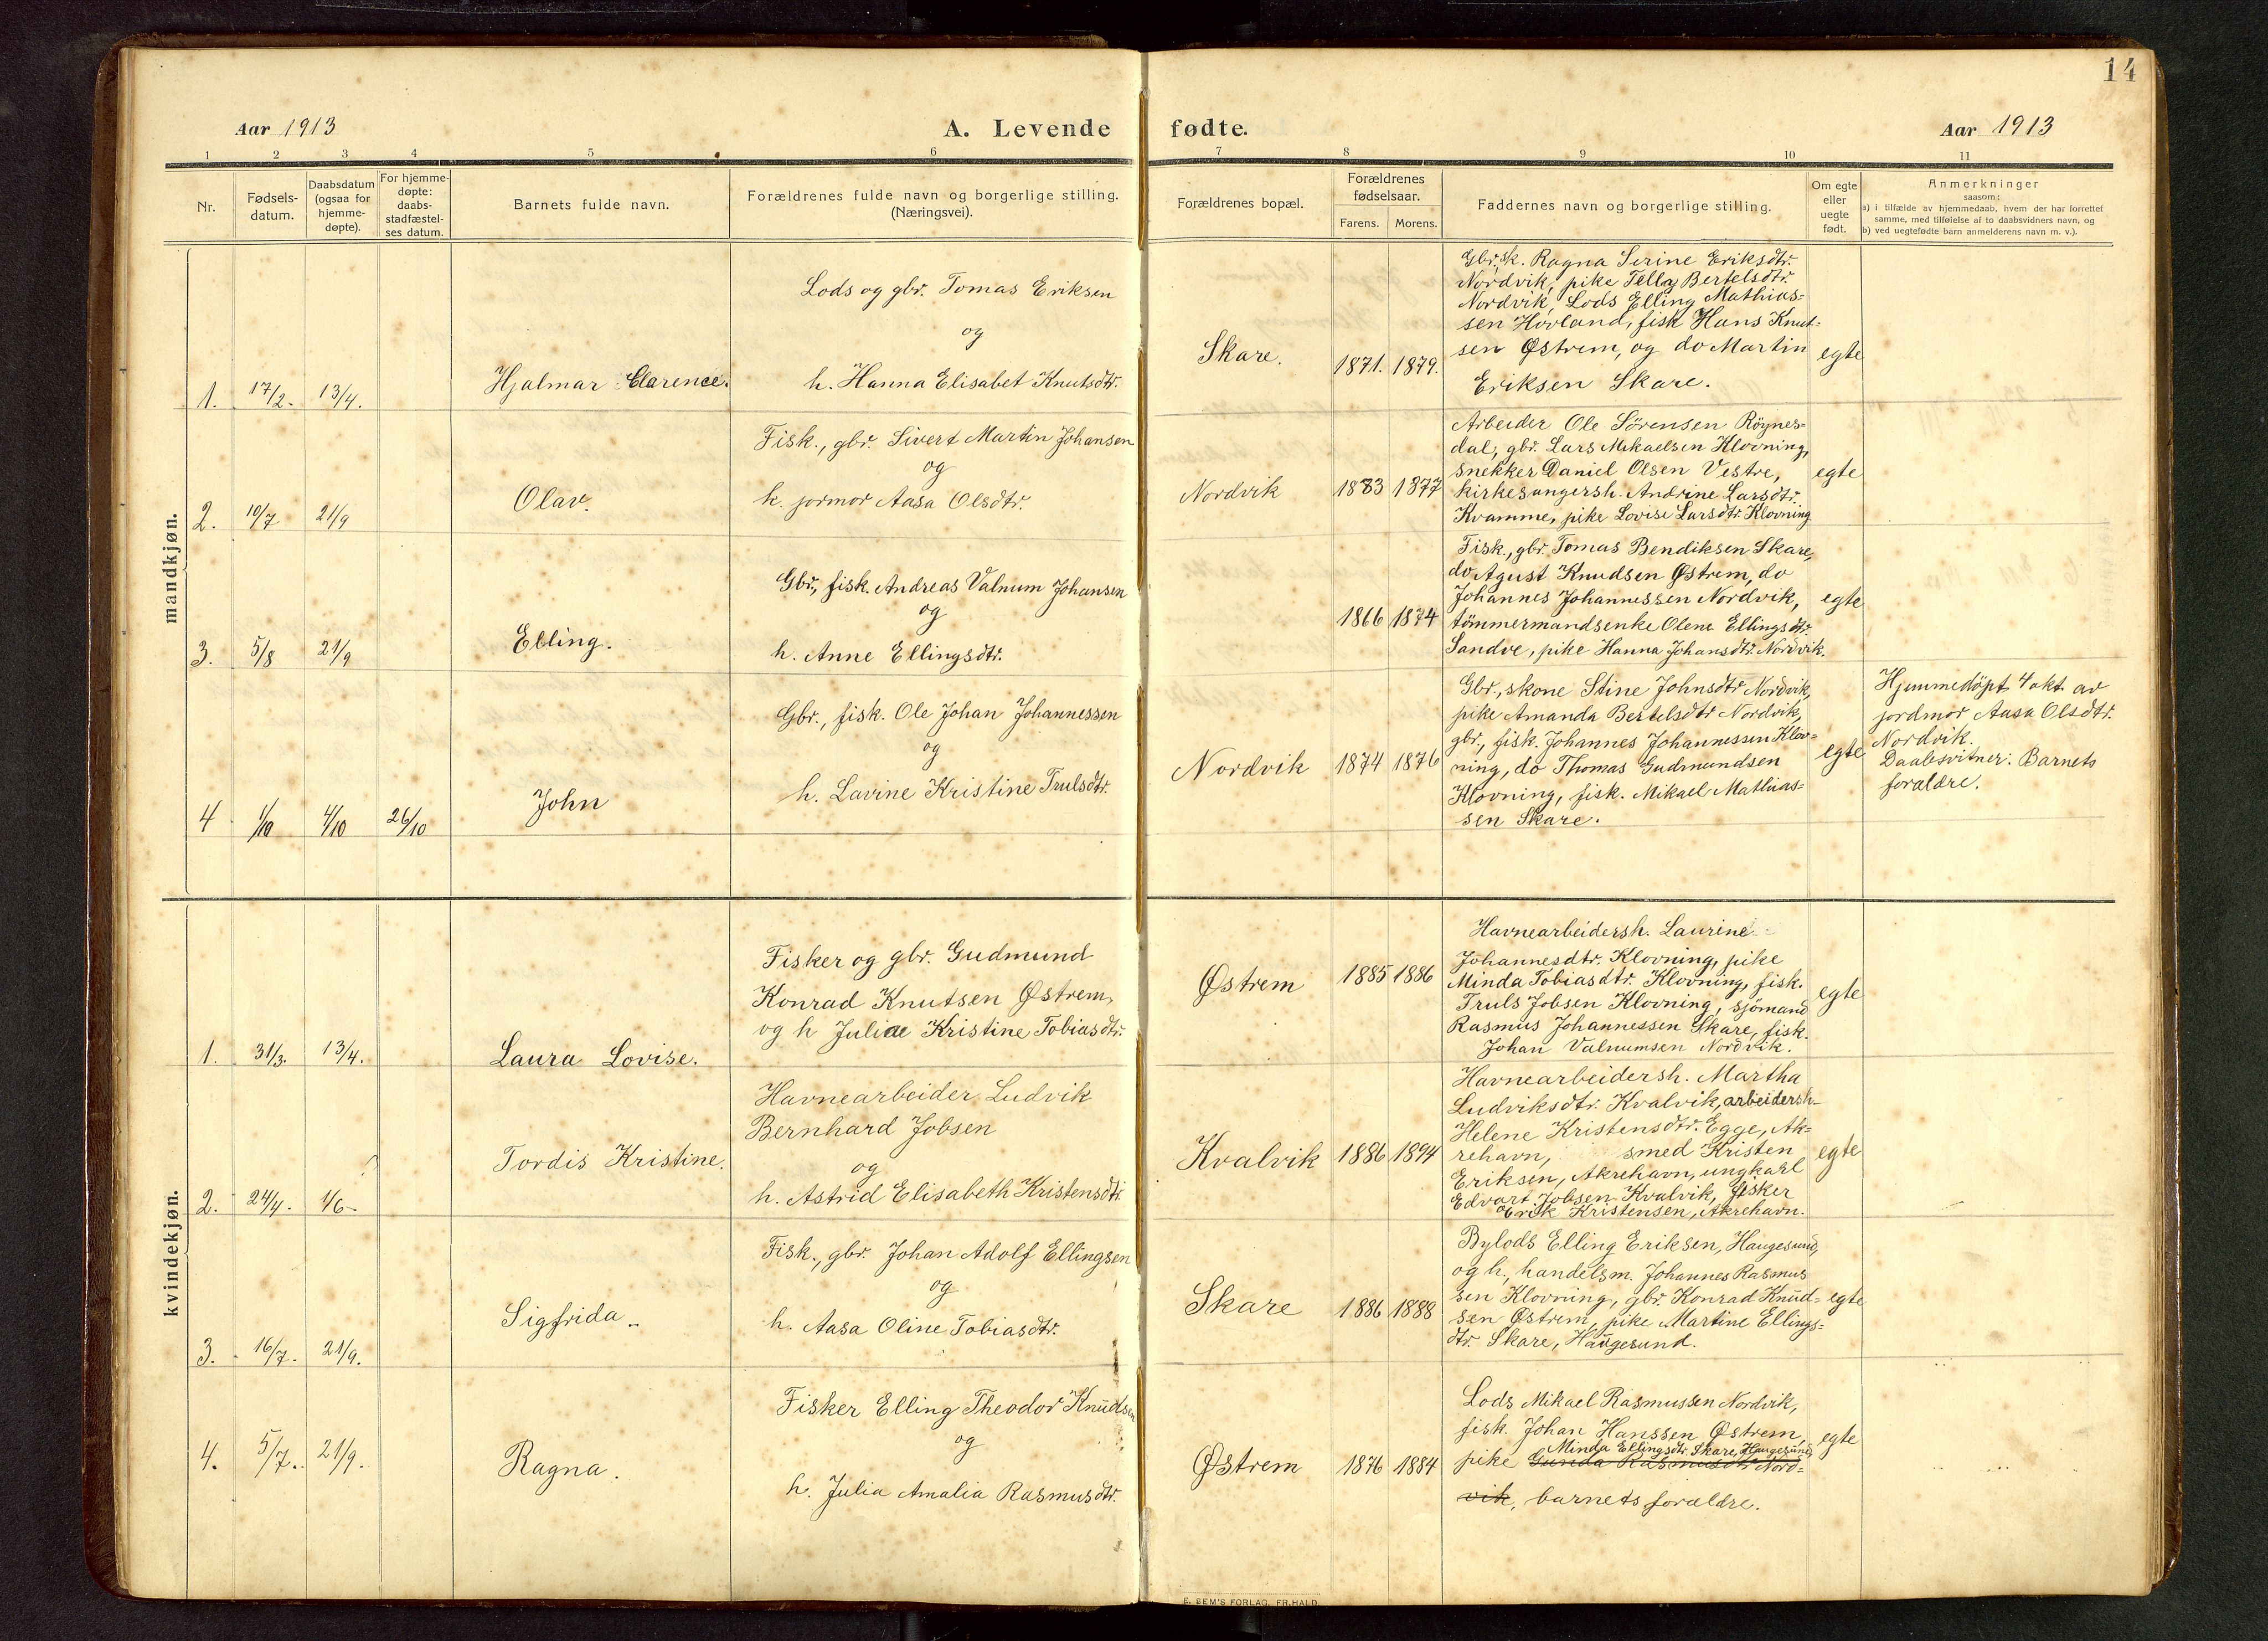 14
Aar 1913
A. Levende fødte.
Aar 1913
1 2 3 4 5 6 7 8 9 10 11
Nr.
Fødsels-
datum.
Daabsdatum
(ogsaa for
hjemme-
døpte).
For hjemme-
døpte:
daabs-
stadfæstel-
ses datum.
Barnets fulde navn.
Forældrenes fulde navn og borgerlige stilling.
(Næringsvei).
Forældrenes bopæl.
Forældrenes
fødselsaar.
Farens. Morens.
Faddernes navn og borgerlige stilling.
Om egte
eller
uegte
født.
Anmerkninger
saasom:
a) i tilfælde av hjemmedaab, hvem der har forrettet
samme, med tilføielse af to daabsvidners navn, og
b) ved uegtefødte barn anmelderens navn m. v.).
mandkjøn.
1. 17/2. 13/4.
Hjalmar Clarence.
Lods og gbr. Tomas Eriksen
og
h. Hanna Elisabet Knutsdtr.
Skare. 1871. 1879.
Gbr.sk. Ragna Serine Eriksdtr.
Nordvik, pike Tella Bertelsdtr.
Nordvik, Lods Elling Mathias=
sen Hovland, fisk Hans Knut=
sen Østrem, og do Martin
Eriksen Skare.
egte
2. 10/7 21/9
Olav.
Fisk., gbr. Sivert Martin Johansen
og
h. jormor Aasa Olsdtr.
Nordvik 1883 1877
Arbeider Ole Sørensen Röynes=
dal, gbr. Lars Mikaelsen Klovning,
snekker Daniel Olsen Vestre,
kirkesangersh. Andrine Larsdtr.
Kvamme, pike Lovise Larsdtr. Klovning
egte
3. 5/8 21/9
Elling.
Gbr., fisk. Andreas Valnum Johansen
og
h. Anne Ellingsdtr.
1866 1874
Fisk., gbr. Tomas Bendiksen Skare,
do Agust Knudsen Østrem, do
Johannes Johannessen Nordvik,
tömmermandsenke Olene Ellingsdtr.
Sandve, pike Hanna Johansdtr. Nordvik.
egte
4 1/10 4/10 26/10
John
Gbr., fisk. Ole Johan Johannessen
og
h. Lavine Kristine Trulsdtr.
Nordvik 1874 1876
Gbr., skone Stine Johnsdtr Nordvik,
pike Amanda Bertelsdtr Nordvik,
gbr., fisk. Johannes Johannessen Klov=
ning, do Thomas Gudmundsen
Klovning, fisk. Mikael Mathias=
sen Skare.
egte
Hjemmedöpt 4 okt. av
jordmor Aasa Olsdtr.
Nordvik.
Daabsvitner: Barnets
forældre.
kvindekjøn.
1. 31/3. 13/4.
Laura Lovise.
Fisker og gbr. Gudmund
Konrad Knutsen Østrem,
og h Juliae Kristine Tobiasdtr.
Østrem 1885 1886
Havnearbeidersh. Laurine
Johannesdtr. Klovning, pike
Minda Tobiasdtr. Klovning, fisk.
Truls Jobsen Klovning, sjömand
Rasmus Johannessen Skare, fisk.
Johan Valnumsen Nordvik.
egte
2. 24/4. 1/6
Tordis Kristine.
Havnearbeider Ludvik
Bernhard Jobsen
og
h. Astrid Elisabeth Kristensdtr
Kvalvik 1886 1894
Havnearbeidersh. Martha
Ludviksdtr. Kvalvik, arbeidersh
Helene Kristensdtr. Egge, Ak=
rehavn, smed Kristen
Eriksen, Akrehavn, ungkarl
Edvart Jobsen Kvalvik, fisker
Erik Kristensen, Akrehavn.
egte
3. 16/7. 21/9.
Sigfrida
Fisk., gbr. Johan Adolf Ellingsen
og
h. Aasa Oline Tobiasdtr.
Skare 1886 1888
Bylods Elling Eriksen, Haugesund,
og h., handelsm. Johannes Rasmus
sen Klovning, gbr. Konrad Knud=
sen Østrem, pike Martine Ellings=
dtr. Skare, Haugesund.
egte
4. 5/7. 21/9.
Ragna.
Fisker Elling Theodor Knudsen
og
h. Julia Amalia Rasmusdtr.
Østrem 1876 1884
Lods Mikael Rasmussen Nordvik,
fisk. Johan Hanssen Østrem,
Minda Ellingsdtr. Skare, Haugesund
pike Gunda Rasmusdtr Nord=
vik, barnets forældre.
egte
E. SEM'S FORLAG, FR.HALD.